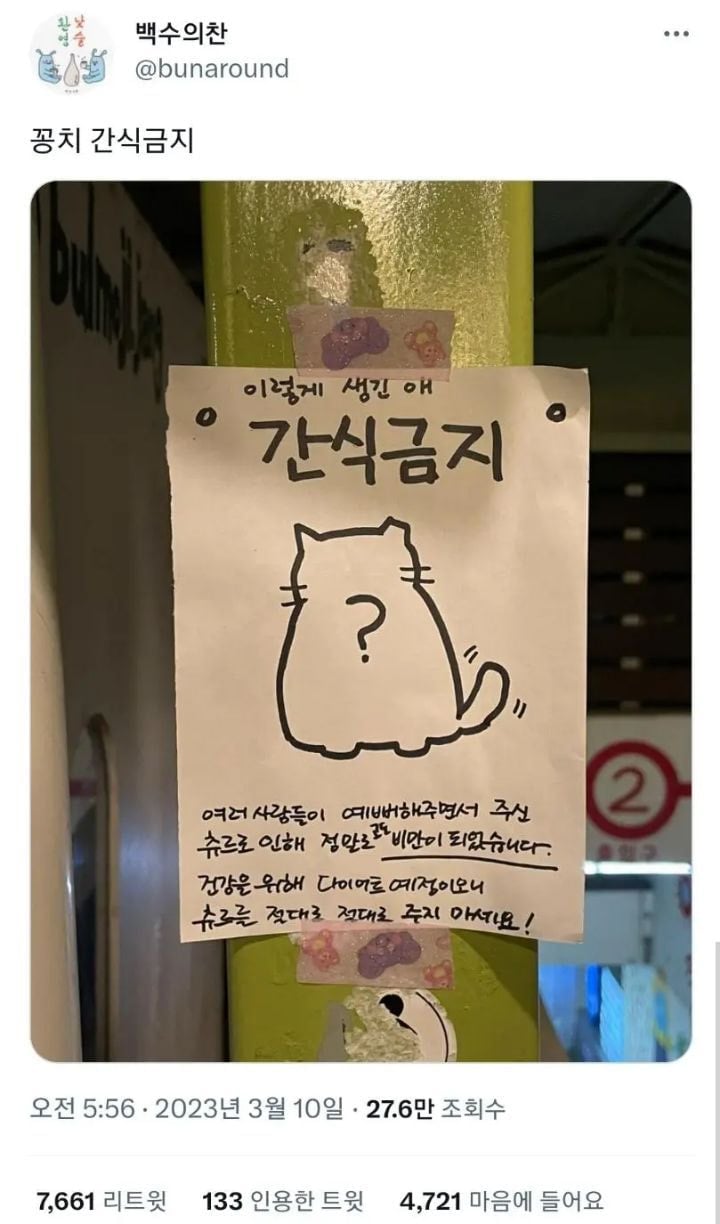 환 낮
영 술
백수의찬
@bunaround
꽁치 간식금지
bulmoji jang
이렇게 생긴 애
간식금지
?
여러 사람들이 예뻐해주면서 주신
츄르로 인해 정말로 고도 비만이 되었습니다.
건강을 위해 다이어트 예정이오니
츄르를 절대로 절대로 주지 마세요!
2
출입구
오전 5:56 · 2023년 3월 10일 · 27.6만 조회수
7,661 리트윗 133 인용한 트윗 4,721 마음에 들어요